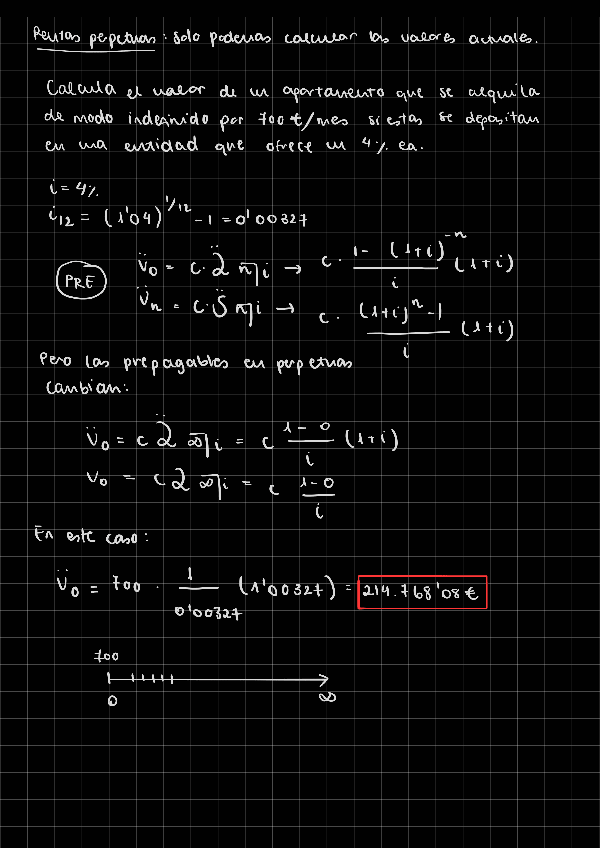 Rentas perpetuas: solo podemos calcular los valores actuales.
Calcula el valor de un apartamento que se alquila
de modo indefinido por 700 €/mes si estas se depositan
en una entidad que ofrece un 4% ea.
i = 4%
i₁₂ = (1'04)^1/12 - 1 = 0'00327
PRE
V̈₀ = c · ä n⌉i → c · (1 - (1+i)^-n)/i (1+i)
V̈ₙ = c · S̈ n⌉i → c · ((1+i)^n - 1)/i (1+i)
Pero las prepagables en perpetuas
cambian:
V̈₀ = c ä ∞⌉i = c (1-0)/i (1+i)
V₀ = c a ∞⌉i = c (1-0)/i
En este caso:
V̈₀ = 700 · 1/0'00327 (1'00327) = 214.768'08 €
700
0 ∞